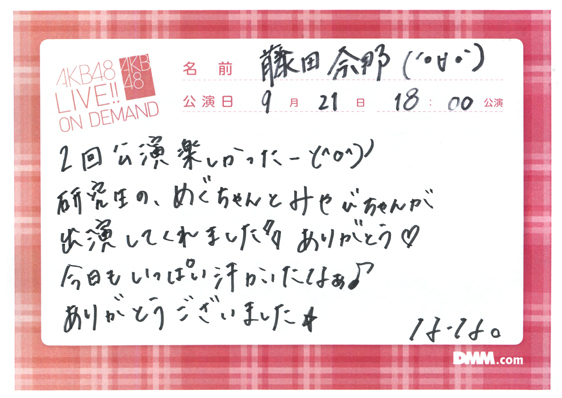 AKB48
LIVE!!
ON DEMAND
AKB
48
名前 藤田奈那(^o∀o^)
公演日 9月21日 18:00公演
2回公演楽しかったー(^o^)ノ
研究生の、めぐちゃんとみやびちゃんが
出演してくれました ありがとう♡
今日もいっぱい汗かいたなぁ♪
ありがとうございました★
なーな。
DMM.com